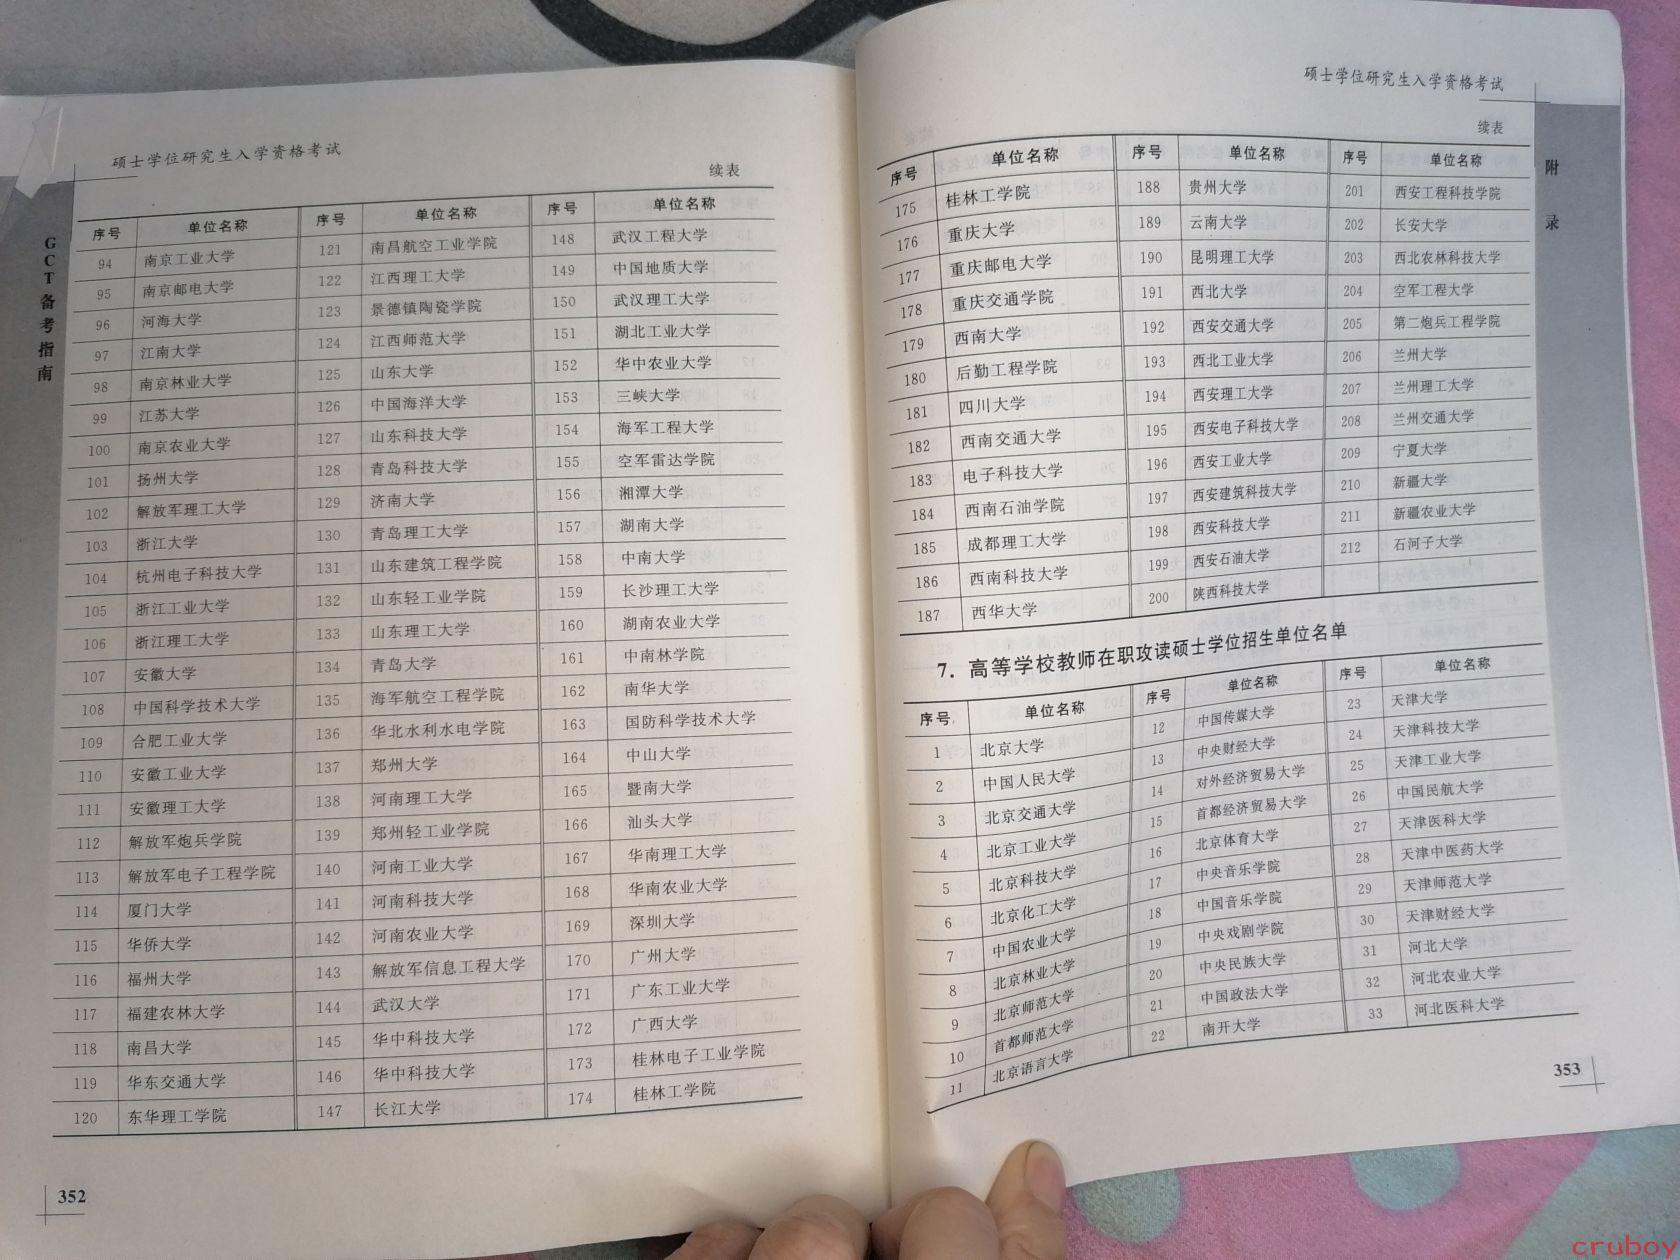 硕士学位研究生入学资格考试
续表
GCT备考指南
序号 单位名称 序号 单位名称 序号 单位名称
94 南京工业大学 121 南昌航空工业学院 148 武汉工程大学
95 南京邮电大学 122 江西理工大学 149 中国地质大学
96 河海大学 123 景德镇陶瓷学院 150 武汉理工大学
97 江南大学 124 江西师范大学 151 湖北工业大学
98 南京林业大学 125 山东大学 152 华中农业大学
99 江苏大学 126 中国海洋大学 153 三峡大学
100 南京农业大学 127 山东科技大学 154 海军工程大学
101 扬州大学 128 青岛科技大学 155 空军雷达学院
102 解放军理工大学 129 济南大学 156 湘潭大学
103 浙江大学 130 青岛理工大学 157 湖南大学
104 杭州电子科技大学 131 山东建筑工程学院 158 中南大学
105 浙江工业大学 132 山东轻工业学院 159 长沙理工大学
106 浙江理工大学 133 山东理工大学 160 湖南农业大学
107 安徽大学 134 青岛大学 161 中南林学院
108 中国科学技术大学 135 海军航空工程学院 162 南华大学
109 合肥工业大学 136 华北水利水电学院 163 国防科学技术大学
110 安徽工业大学 137 郑州大学 164 中山大学
111 安徽理工大学 138 河南理工大学 165 暨南大学
112 解放军炮兵学院 139 郑州轻工业学院 166 汕头大学
113 解放军电子工程学院 140 河南工业大学 167 华南理工大学
114 厦门大学 141 河南科技大学 168 华南农业大学
115 华侨大学 142 河南农业大学 169 深圳大学
116 福州大学 143 解放军信息工程大学 170 广州大学
117 福建农林大学 144 武汉大学 171 广东工业大学
118 南昌大学 145 华中科技大学 172 广西大学
119 华东交通大学 146 华中科技大学 173 桂林电子工业学院
120 东华理工学院 147 长江大学 174 桂林工学院
352
硕士学位研究生入学资格考试
续表
附录
序号 单位名称 序号 单位名称 序号 单位名称
175 桂林工学院 188 贵州大学 201 西安工程科技学院
176 重庆大学 189 云南大学 202 长安大学
177 重庆邮电大学 190 昆明理工大学 203 西北农林科技大学
178 重庆交通学院 191 西北大学 204 空军工程大学
179 西南大学 192 西安交通大学 205 第二炮兵工程学院
180 后勤工程学院 193 西北工业大学 206 兰州大学
181 四川大学 194 西安理工大学 207 兰州理工大学
182 西南交通大学 195 西安电子科技大学 208 兰州交通大学
183 电子科技大学 196 西安工业大学 209 宁夏大学
184 西南石油学院 197 西安建筑科技大学 210 新疆大学
185 成都理工大学 198 西安科技大学 211 新疆农业大学
186 西南科技大学 199 西安石油大学 212 石河子大学
187 西华大学 200 陕西科技大学
7. 高等学校教师在职攻读硕士学位招生单位名单
序号 单位名称 序号 单位名称 序号 单位名称
1 北京大学 12 中国传媒大学 23 天津大学
2 中国人民大学 13 中央财经大学 24 天津科技大学
3 北京交通大学 14 对外经济贸易大学 25 天津工业大学
4 北京工业大学 15 首都经济贸易大学 26 中国民航大学
5 北京科技大学 16 北京体育大学 27 天津医科大学
6 北京化工大学 17 中央音乐学院 28 天津中医药大学
7 中国农业大学 18 中国音乐学院 29 天津师范大学
8 北京林业大学 19 中央戏剧学院 30 天津财经大学
9 北京师范大学 20 中央民族大学 31 河北大学
10 首都师范大学 21 中国政法大学 32 河北农业大学
11 北京语言大学 22 南开大学 33 河北医科大学
353
cruboy